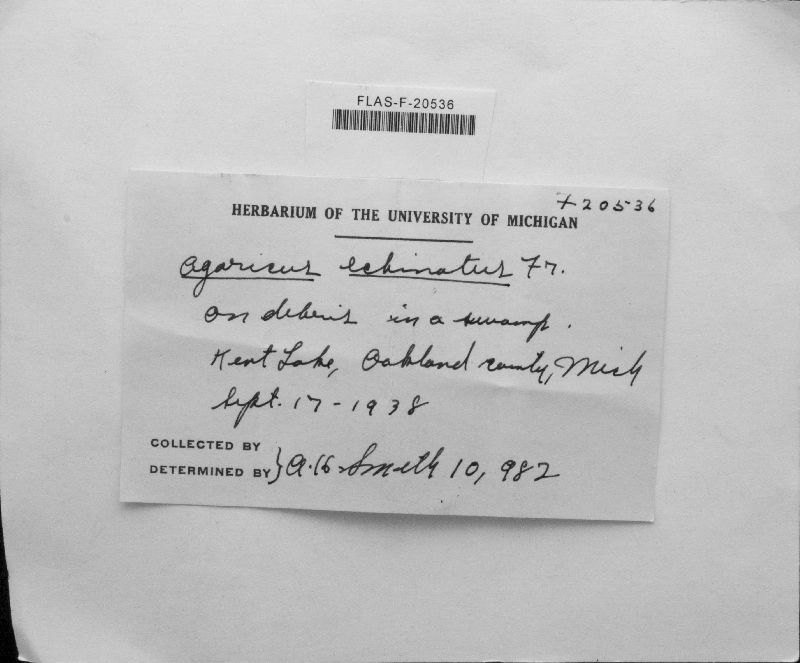 FLAS-F-20536
F20536
HERBARIUM OF THE UNIVERSITY OF MICHIGAN
Agaricus echinatus Fr.
On debris in a swamp.
Kent Lake, Oakland county, Mich
Sept. 17-1938
COLLECTED BY
DETERMINED BY } A.H. Smith 10,982